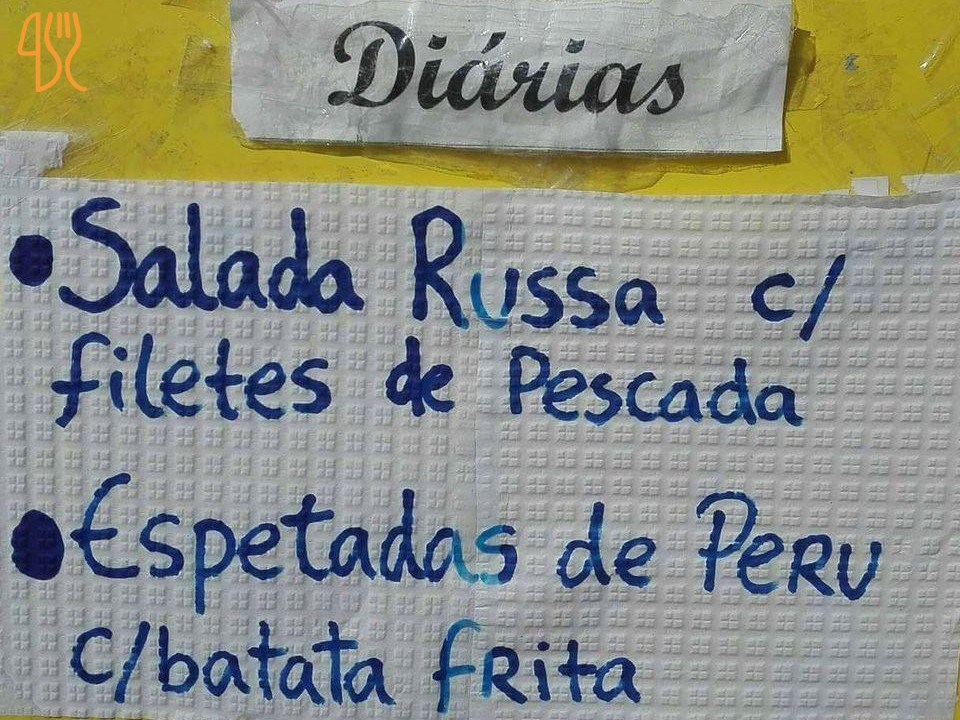 Diárias
• Salada Russa c/
filetes de Pescada
• Espetadas de PERU
c/batata fRita